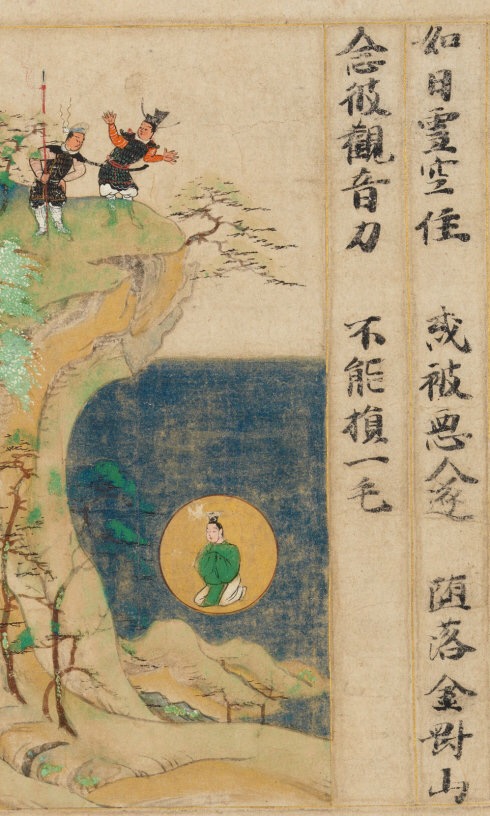 如日虚空住 或被悪人逐 堕落金剛山
念彼觀音力 不能損一毛